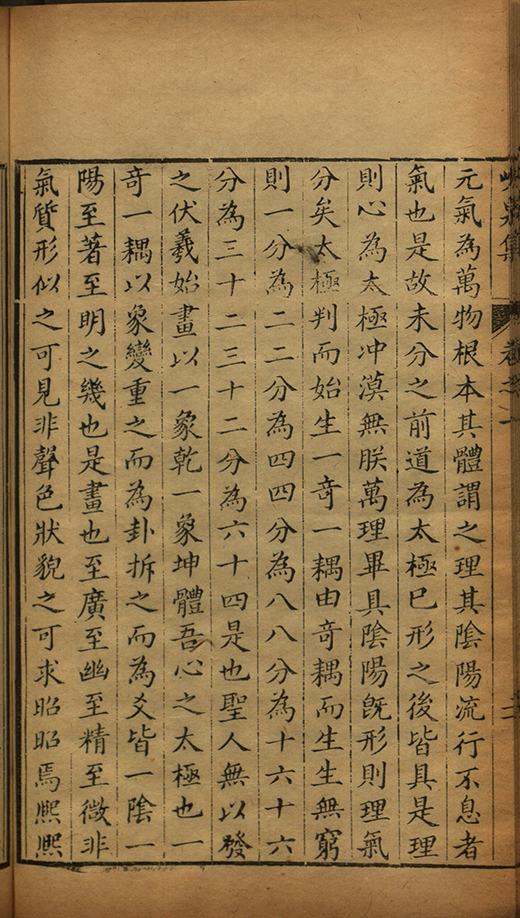 元氣為萬物根本其體謂之理其陰陽流行不息者
氣也是故未分之前道為太極已形之後皆具是理
則心為太極冲漠無朕萬理畢具陰陽既形則理氣
分矣太極判而始生一奇一耦由奇耦而生生無窮
則一分為二二分為四四分為八八分為十六十六
分為三十二三十二分為六十四是也聖人無以發
之伏羲始畫以一象乾一象坤體吾心之太極也一
奇一耦以象變重之而為卦拆之而為爻皆一陰一
陽至著至明之幾也是畫也至廣至幽至精至微非
氣質形似之可見非聲色狀貌之可求昭昭焉熈熈